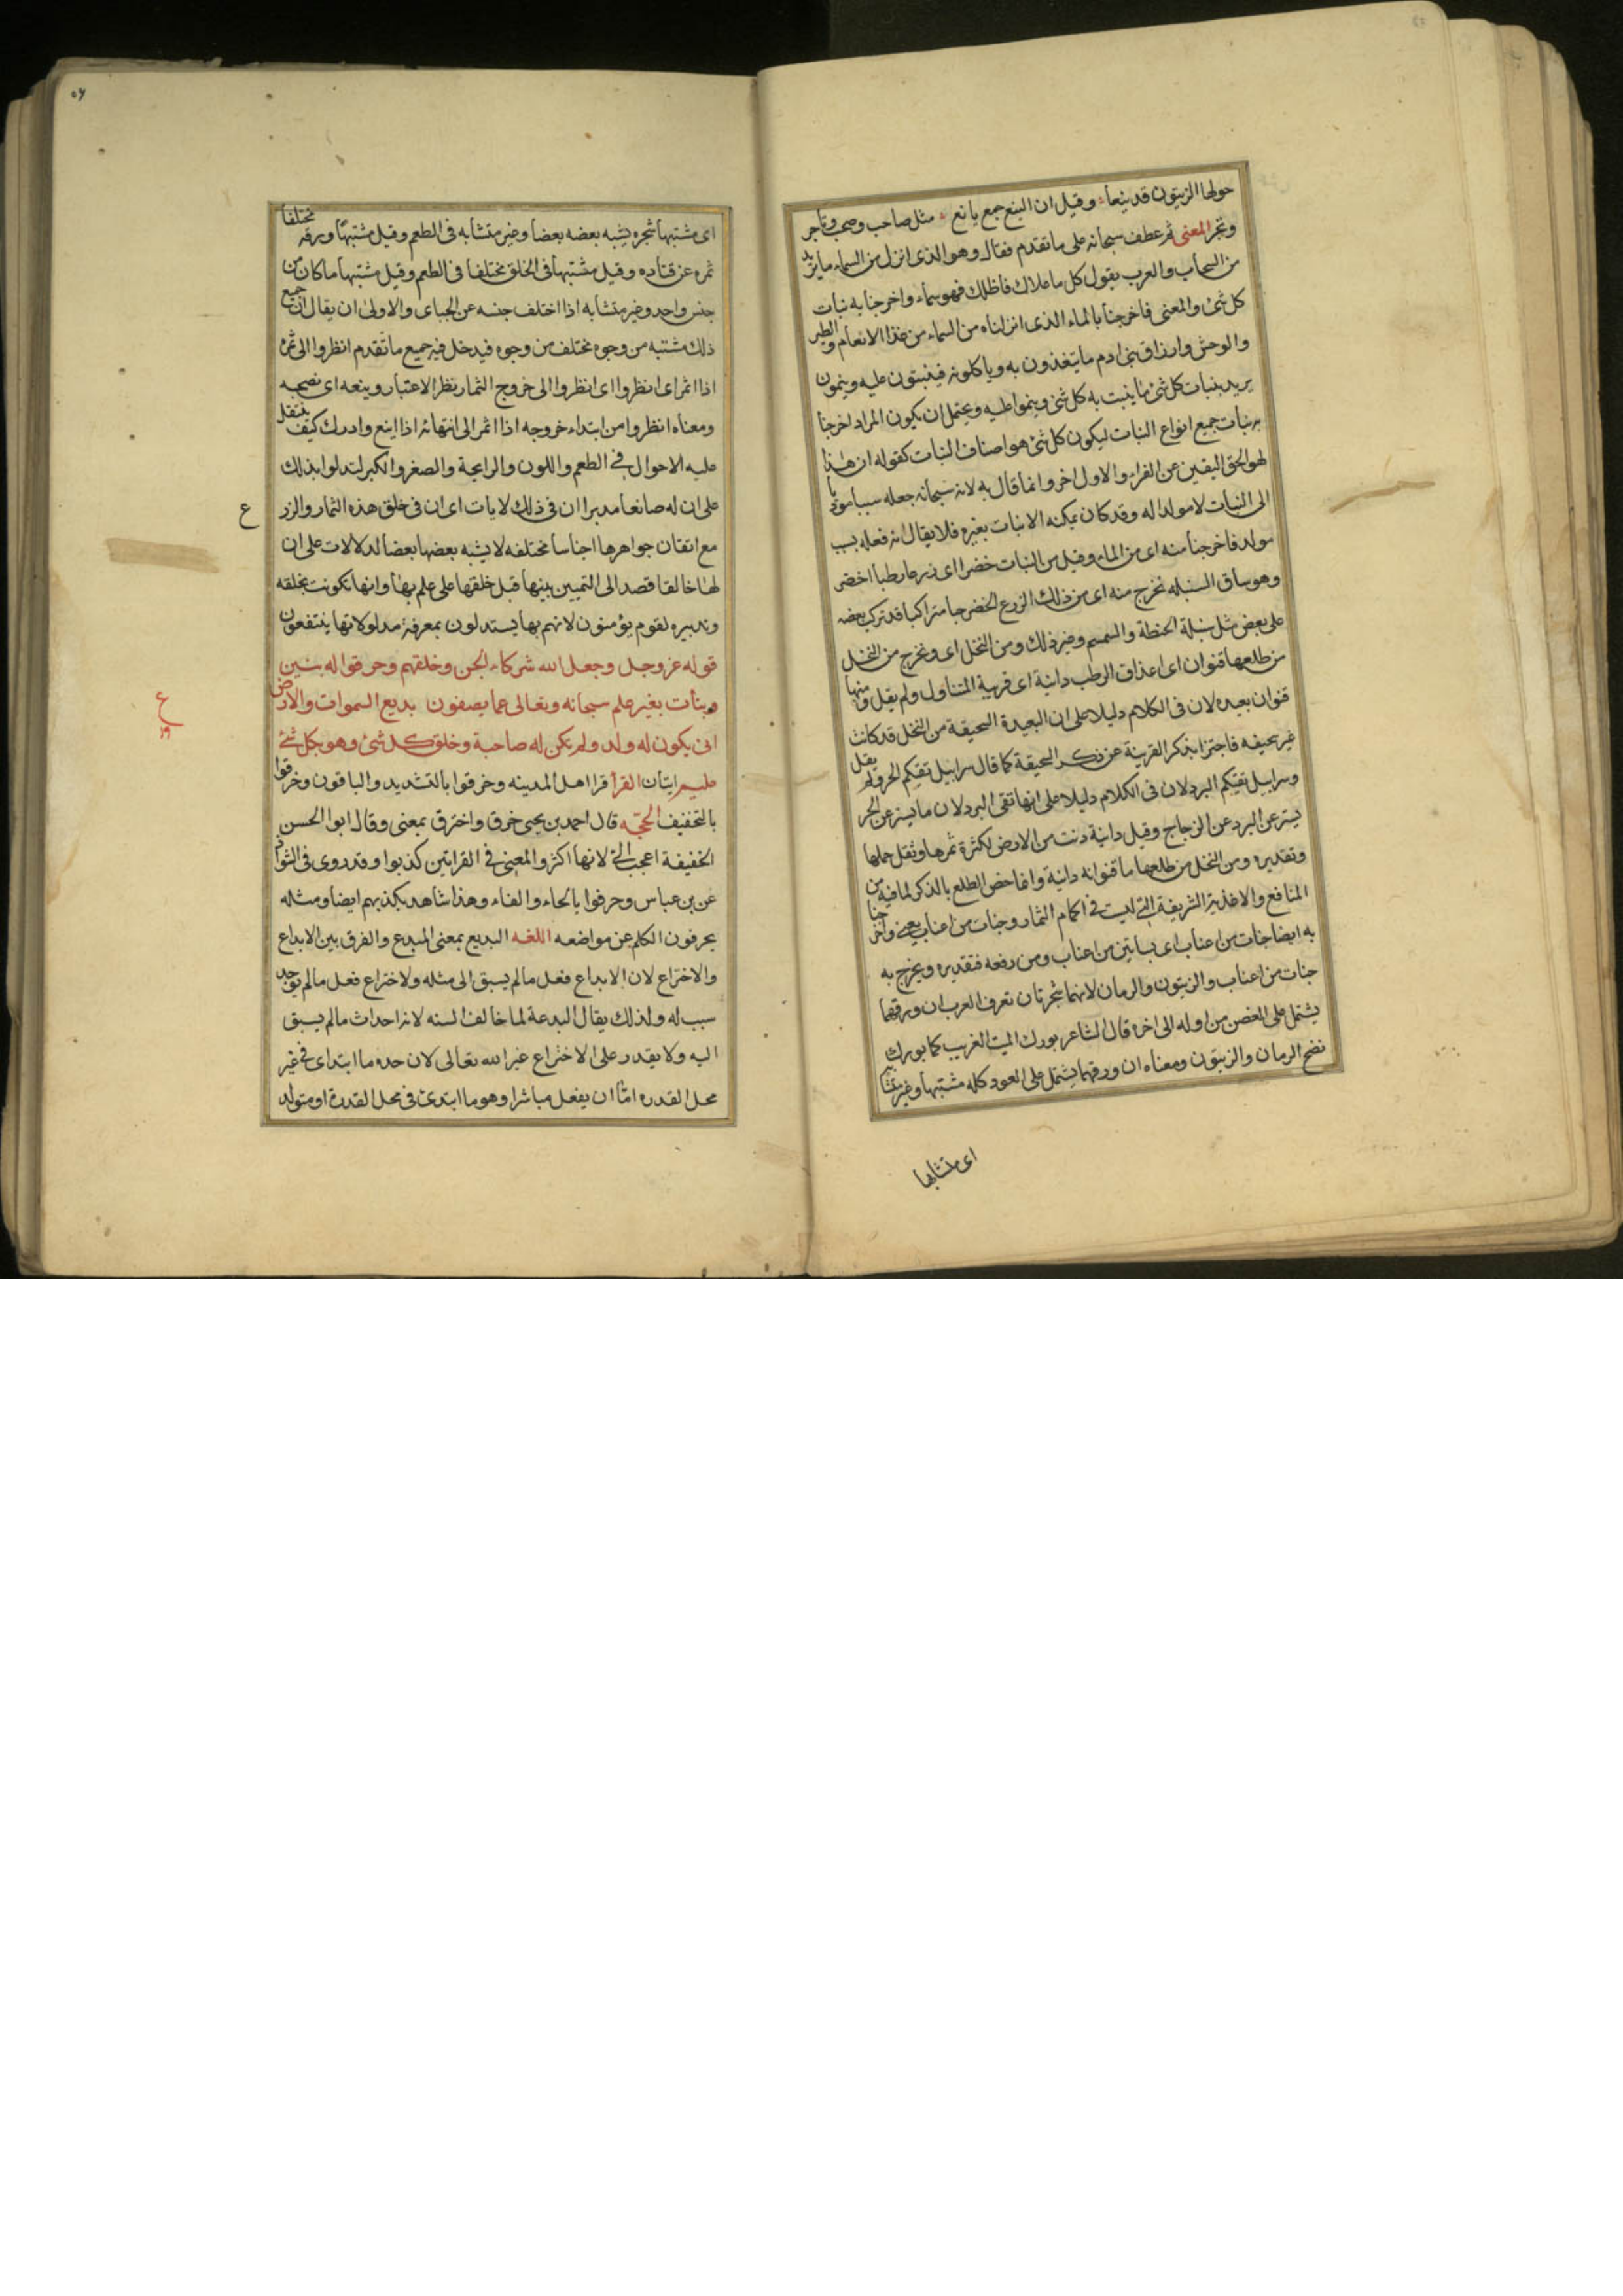 حولها الزيتون قد ينعا وقيل ان الينع جمع يانع مثل صاحب وصحب وتاجر
وتجر المعنى ثم عطف سبحانه على ما تقدم فقال وهو الذى انزل من السماء ماء يريد
من السحاب والعرب يقول كل ما علاك فاظلك فهو سماء واخرجنا به نبات
كل شئ والمعنى فاخرجنا بالماء الذى انزلناه من السماء من غذا الانعام والطير
والوحش وارزاق بنى ادم ما يتغذون به وياكلونه فينبتون عليه وينمون
يريد بنبات كل شئ ما ينبت به كل شئ وينموا عليه ويحتمل ان يكون المراد اخرجنا
به نبات جميع انواع النبات ليكون كل شئ هو اصناف النبات كقوله ان هذا
لهو الحق اليقين عن الفراء والاول اخر وانما قال به لانه سبحانه جعله سببا مؤديا
الى النبات لا مولدا له وقد كان يمكنه الانبات بغيره فلا يقال انه فعله بسبب
مولد فاخرجنا منه اى من الماء وقيل من النبات خضرا اى زرعا رطبا اخضر
وهو ساق السنبله نخرج منه اى من ذلك الزرع الخضر حبا متراكبا قد تركب بعضه
على بعض مثل سنبلة الحنطة والسمسم وغير ذلك ومن النخل اى ونخرج من النخل
من طلعها قنوان اى اعذاق الرطب دانية اى قريبة المتناول ولم يقل ومنها
قنوان بعيده لان فى الكلام دليلا على ان البعيدة السحيقة من النخل قد كانت
غير سحيقه فاجتزا بذكر القريبة عن ذكر السحيقة كما قال سرابيل تقيكم الحر ولم يقل
وسرابيل تقيكم البرد لان فى الكلام دليلا على انها تقى البرد لان ما يستر عن الحر
يستر عن البرد عن الزجاج وقيل دانية دنت من الارض لكثرة ثمرها وثقل حملها
وتقديره ومن النخل من طلعها ما قنوانه دانية وانما خص الطلع بالذكر لما فيه من
المنافع والاغذية الشريفة التى ليست فى اكمام الثمار وجنات من اعناب يعنى واخرجنا
به ايضا جنات من اعناب اى بساتين من اعناب ومن رفعه فتقديره ويخرج به
جنات من اعناب والزيتون والرمان لانهما شجرتان تعرف العرب ان ورقهما
يشتمل على الغصن من اوله الى اخره قال الشاعر بورك الميت الغريب كما بورك
نضح الرمان والزيتون ومعناه ان ورقهما يشتمل على العود كله مشتبها وغير متشابه
اى متشابها
اى مشتبها شجره يشبه بعضه بعضا وغير متشابه فى الطعم وقيل مشتبها ورقه مختلفا
ثمره عن قتاده وقيل مشتبها فى الخلق مختلفا فى الطعم وقيل مشتبها ما كان من
جنس واحد وغير متشابه اذا اختلف جنسه عن الجباى والاولى ان يقال ان جميع
ذلك مشتبه من وجوه مختلف من وجوه فيدخل فيه جميع ما تقدم انظروا الى ثمره
اذا اثمر اى انظروا اى انظروا الى خروج الثمار نظر الاعتبار وينعه اى نضجه
ومعناه انظروا من ابتداء خروجه اذا اثمر الى انتهائه اذا اينع وادرك كيف ينتقل
عليه الاحوال فى الطعم واللون والرايحة والصغر والكبر لتدلوا بذلك
على ان له صانعا مدبرا ان فى ذلك لايات اى ان فى خلق هذه الثمار والزر
ع
مع اتقان جواهرها اجناسا مختلفه لا يشبه بعضها بعضا لدلالات على ان
لها خالقا قصد الى التمييز بينها قبل خلقها على علم بها وانها تكونت بخلقه
وتدبيره لقوم يؤمنون لانهم بها يستدلون بمعرفة مدلولاتها ينتفعون
قوله عز وجل وجعل الله شركاء الجن وخلقهم وخرقوا له بنين
وبنات بغير علم سبحانه وتعالى عما يصفون بديع السموات والارض
انى يكون له ولد ولم تكن له صاحبة وخلق كل شئ وهو بكل شئ
عليم ايتان القرأ قرا اهل المدينه وخرقوا بالتشديد والباقون وخرقوا
بالتخفيف الحجّه قال احمد بن يحيى خرق واخترق بمعنى وقال ابوا الحسن
الخفيفة اعجب الىّ لانها اكثر والمعنى فى القراتين كذبوا وقد روى فى الشواذ
عن بن عباس وحرفوا بالحاء والفاء وهذا شاهد بكذبهم ايضا ومثله
يحرفون الكلم عن مواضعه اللغه البديع بمعنى المبدع والفرق بين الابداع
والاختراع لان الابداع فعل ما لم يسبق الى مثله ولاختراع فعل ما لم يوجد
سبب له ولذلك يقال البدعة لما خالف السنه لانه احداث ما لم يسبق
اليه ولا يقدر على الاختراع غير الله تعالى لان حده ما ابتداى فى غير
محل القدره امّا ان يفعل مباشرا وهو ما ابتدئ فى محل القدرة او متولد